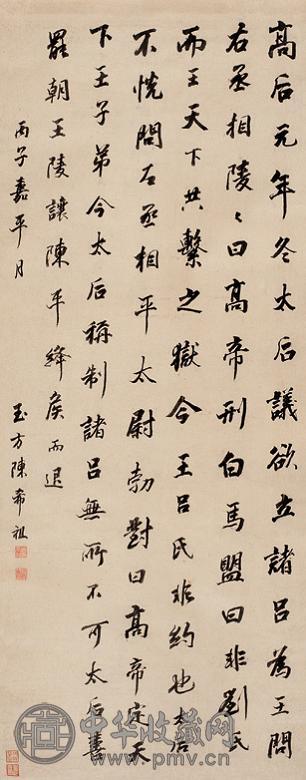 高后元年冬太后議欲立諸呂為王問
右丞相陵々曰高帝刑白馬盟曰非劉氏
而王天下共擊之獄今王呂氏非約也太后
不悅問右丞相平太尉勃對曰高帝定天
下王子弟今太后稱制諸呂無所不可太后喜
罷朝王陵讓陳平絳侯而退
丙子嘉平月
玉方陳希祖
中华收藏网
www.pmv.cn